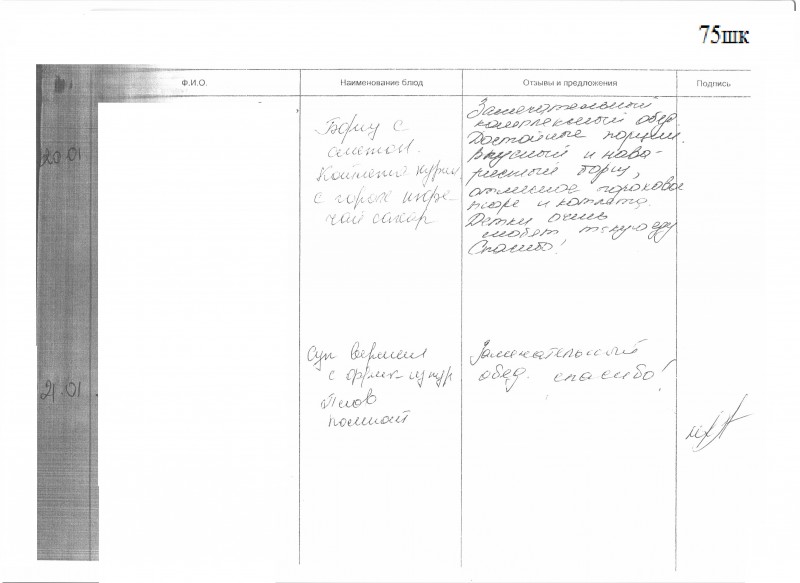 75шк
Ф.И.О.
Наименование блюд
Отзывы и предложения
Подпись
20 01
Борщ с
сметан.
Котлета курин
с горох пюре
чай сахар
Замечательный
комплексный обед.
Достойные порции.
Вкусный и нава-
ристый борщ,
отличное гороховое
пюре и котлета.
Детки очень
любят такую еду
Спасибо!
21.01
Суп вермиш
с фрик-курур
Плов
компот
Замечательный
обед. спасибо!